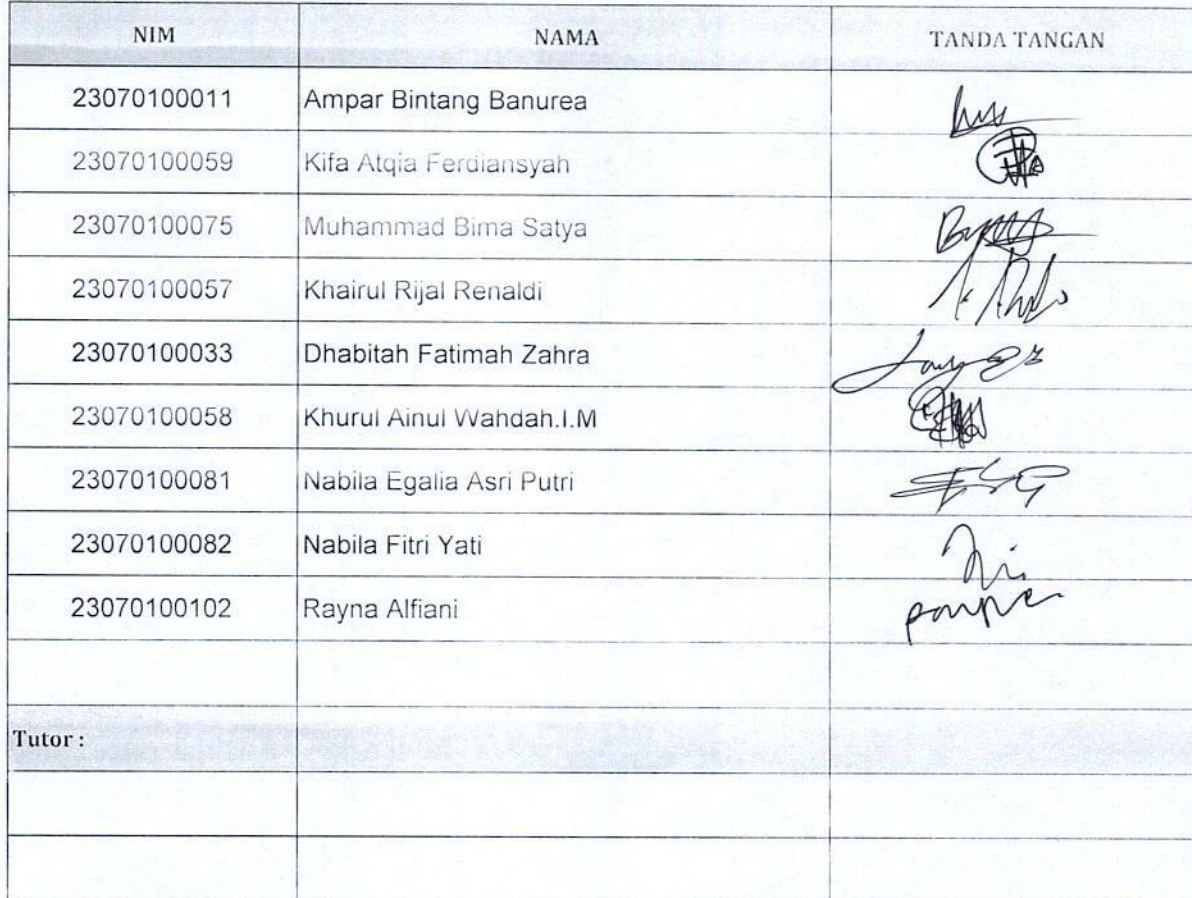 NIM NAMA TANDA TANGAN
23070100011 Ampar Bintang Banurea
23070100059 Kifa Atqia Ferdiansyah
23070100075 Muhammad Bima Satya
23070100057 Khairul Rijal Renaldi
23070100033 Dhabitah Fatimah Zahra
23070100058 Khurul Ainul Wahdah.I.M
23070100081 Nabila Egalia Asri Putri
23070100082 Nabila Fitri Yati
23070100102 Rayna Alfiani
Tutor :